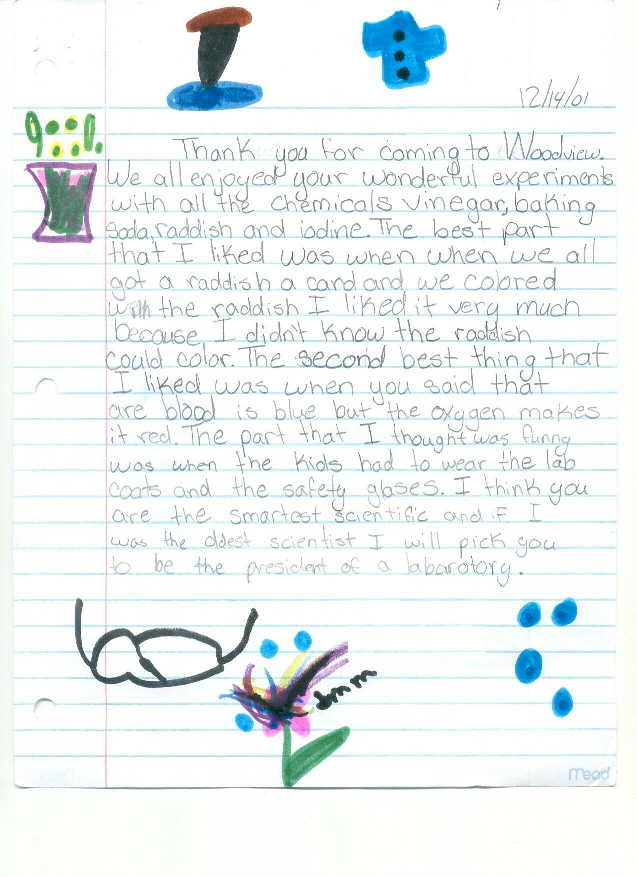 12/14/01
Thank you for coming to Woodview.
We all enjoyed your wonderful experiments
with all the chemicals vinegar, baking
soda, raddish and iodine. The best part
that I liked was when when we all
got a raddish a card and we colored
with the raddish I liked it very much
because I didn't know the raddish
could color. The second best thing that
I liked was when you said that
are blood is blue but the oxygen makes
it red. The part that I thought was funny
was when the kids had to wear the lab
coats and the safety glases. I think you
are the smartest scientific and if I
was the oldest scientist I will pick you
to be the president of a labarotory.
Mead